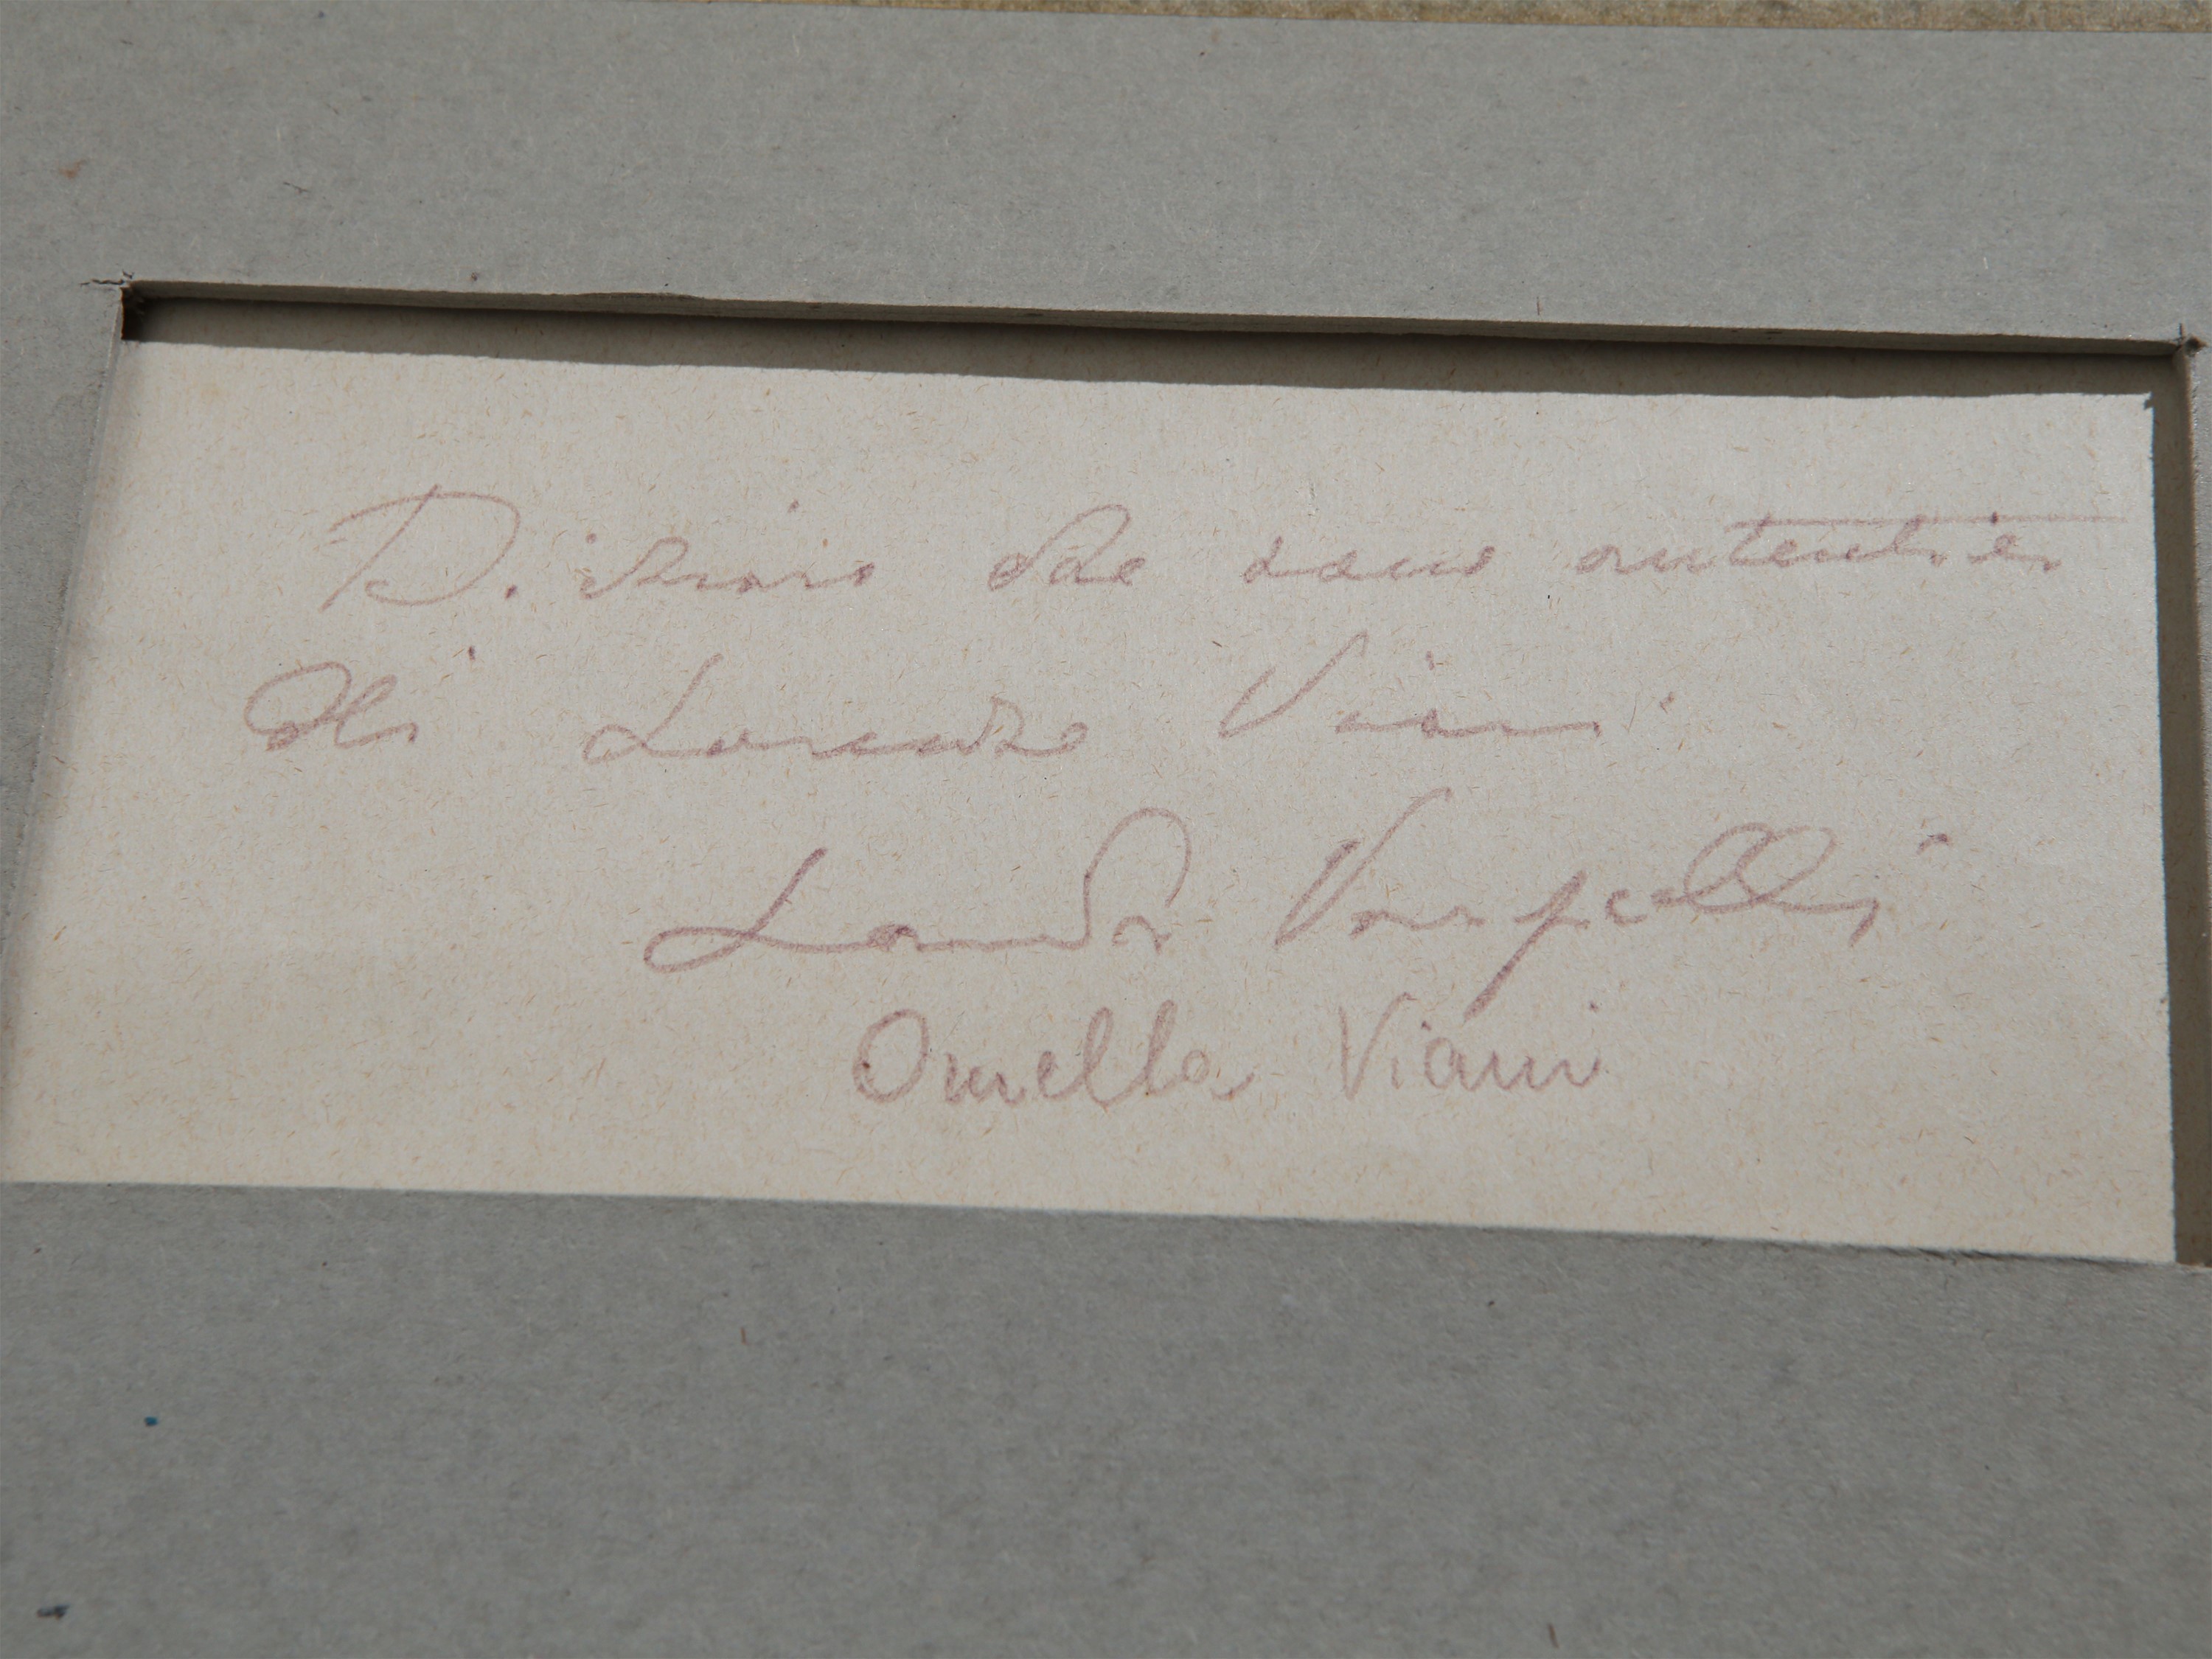 Dichiaro che sono autentici
di Lorenzo Viani
Landa Vannelli
Ornella Viani